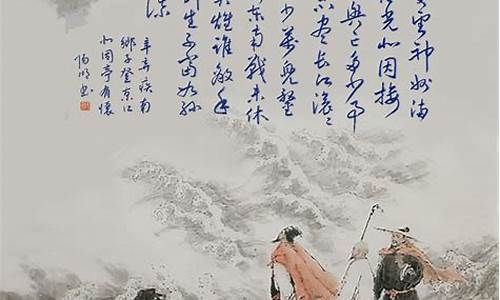 望神州满
眼风光北固楼
興亡多少事
不尽长江滚滚
少萬兜鍪
东南戰未休
英雄谁敵手
生子當如孙
谋
辛弃疾南
鄉子登京口
北固亭有怀